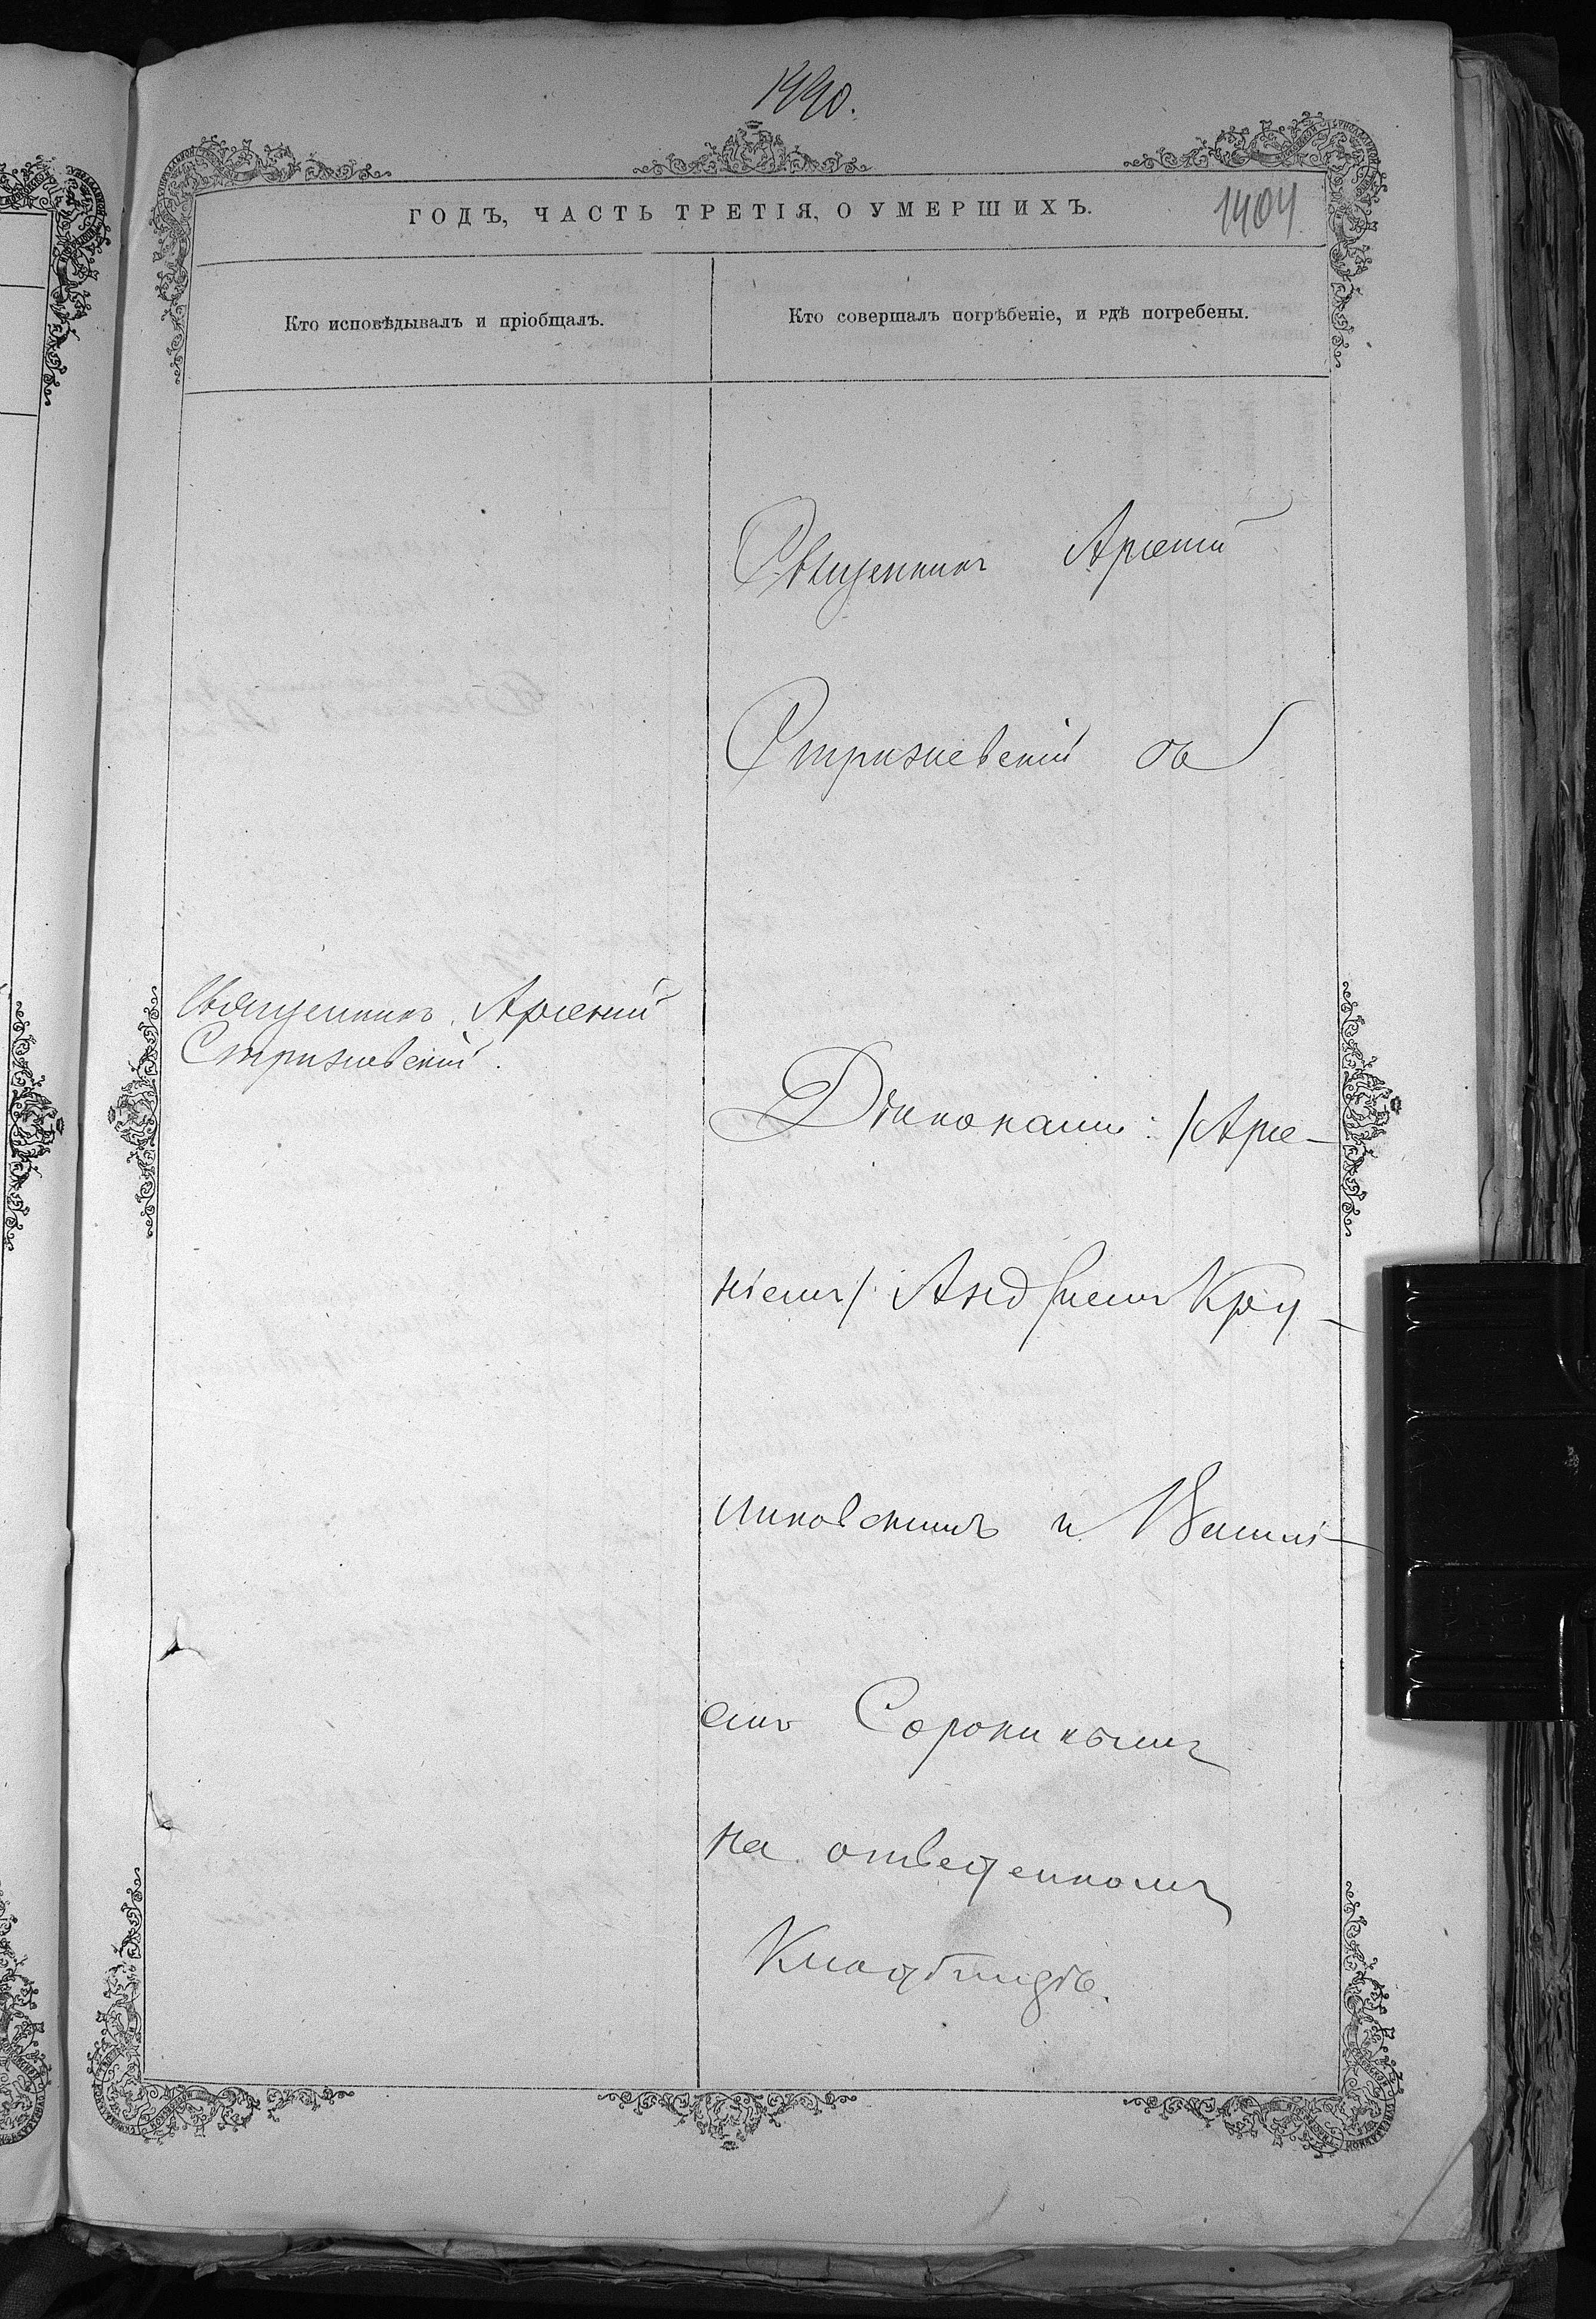 1990.
ГОДЪ, ЧАСТЬ ТРЕТІЯ, О УМЕРШИХЪ.
1404
Кто исповѣдывалъ и пріобщалъ.
Кто совершалъ погрѣбеніе, и гдѣ погребены.
Священникъ Арсеній
Стрижевскій
Священникъ Арсеній
Стрижевскій съ
Діаконами: /Арсе-
ніемъ/ Андреемъ Кру-
ликовскимъ и Васил-
емъ Сорокинымъ
на отведенномъ
Кладбищѣ.